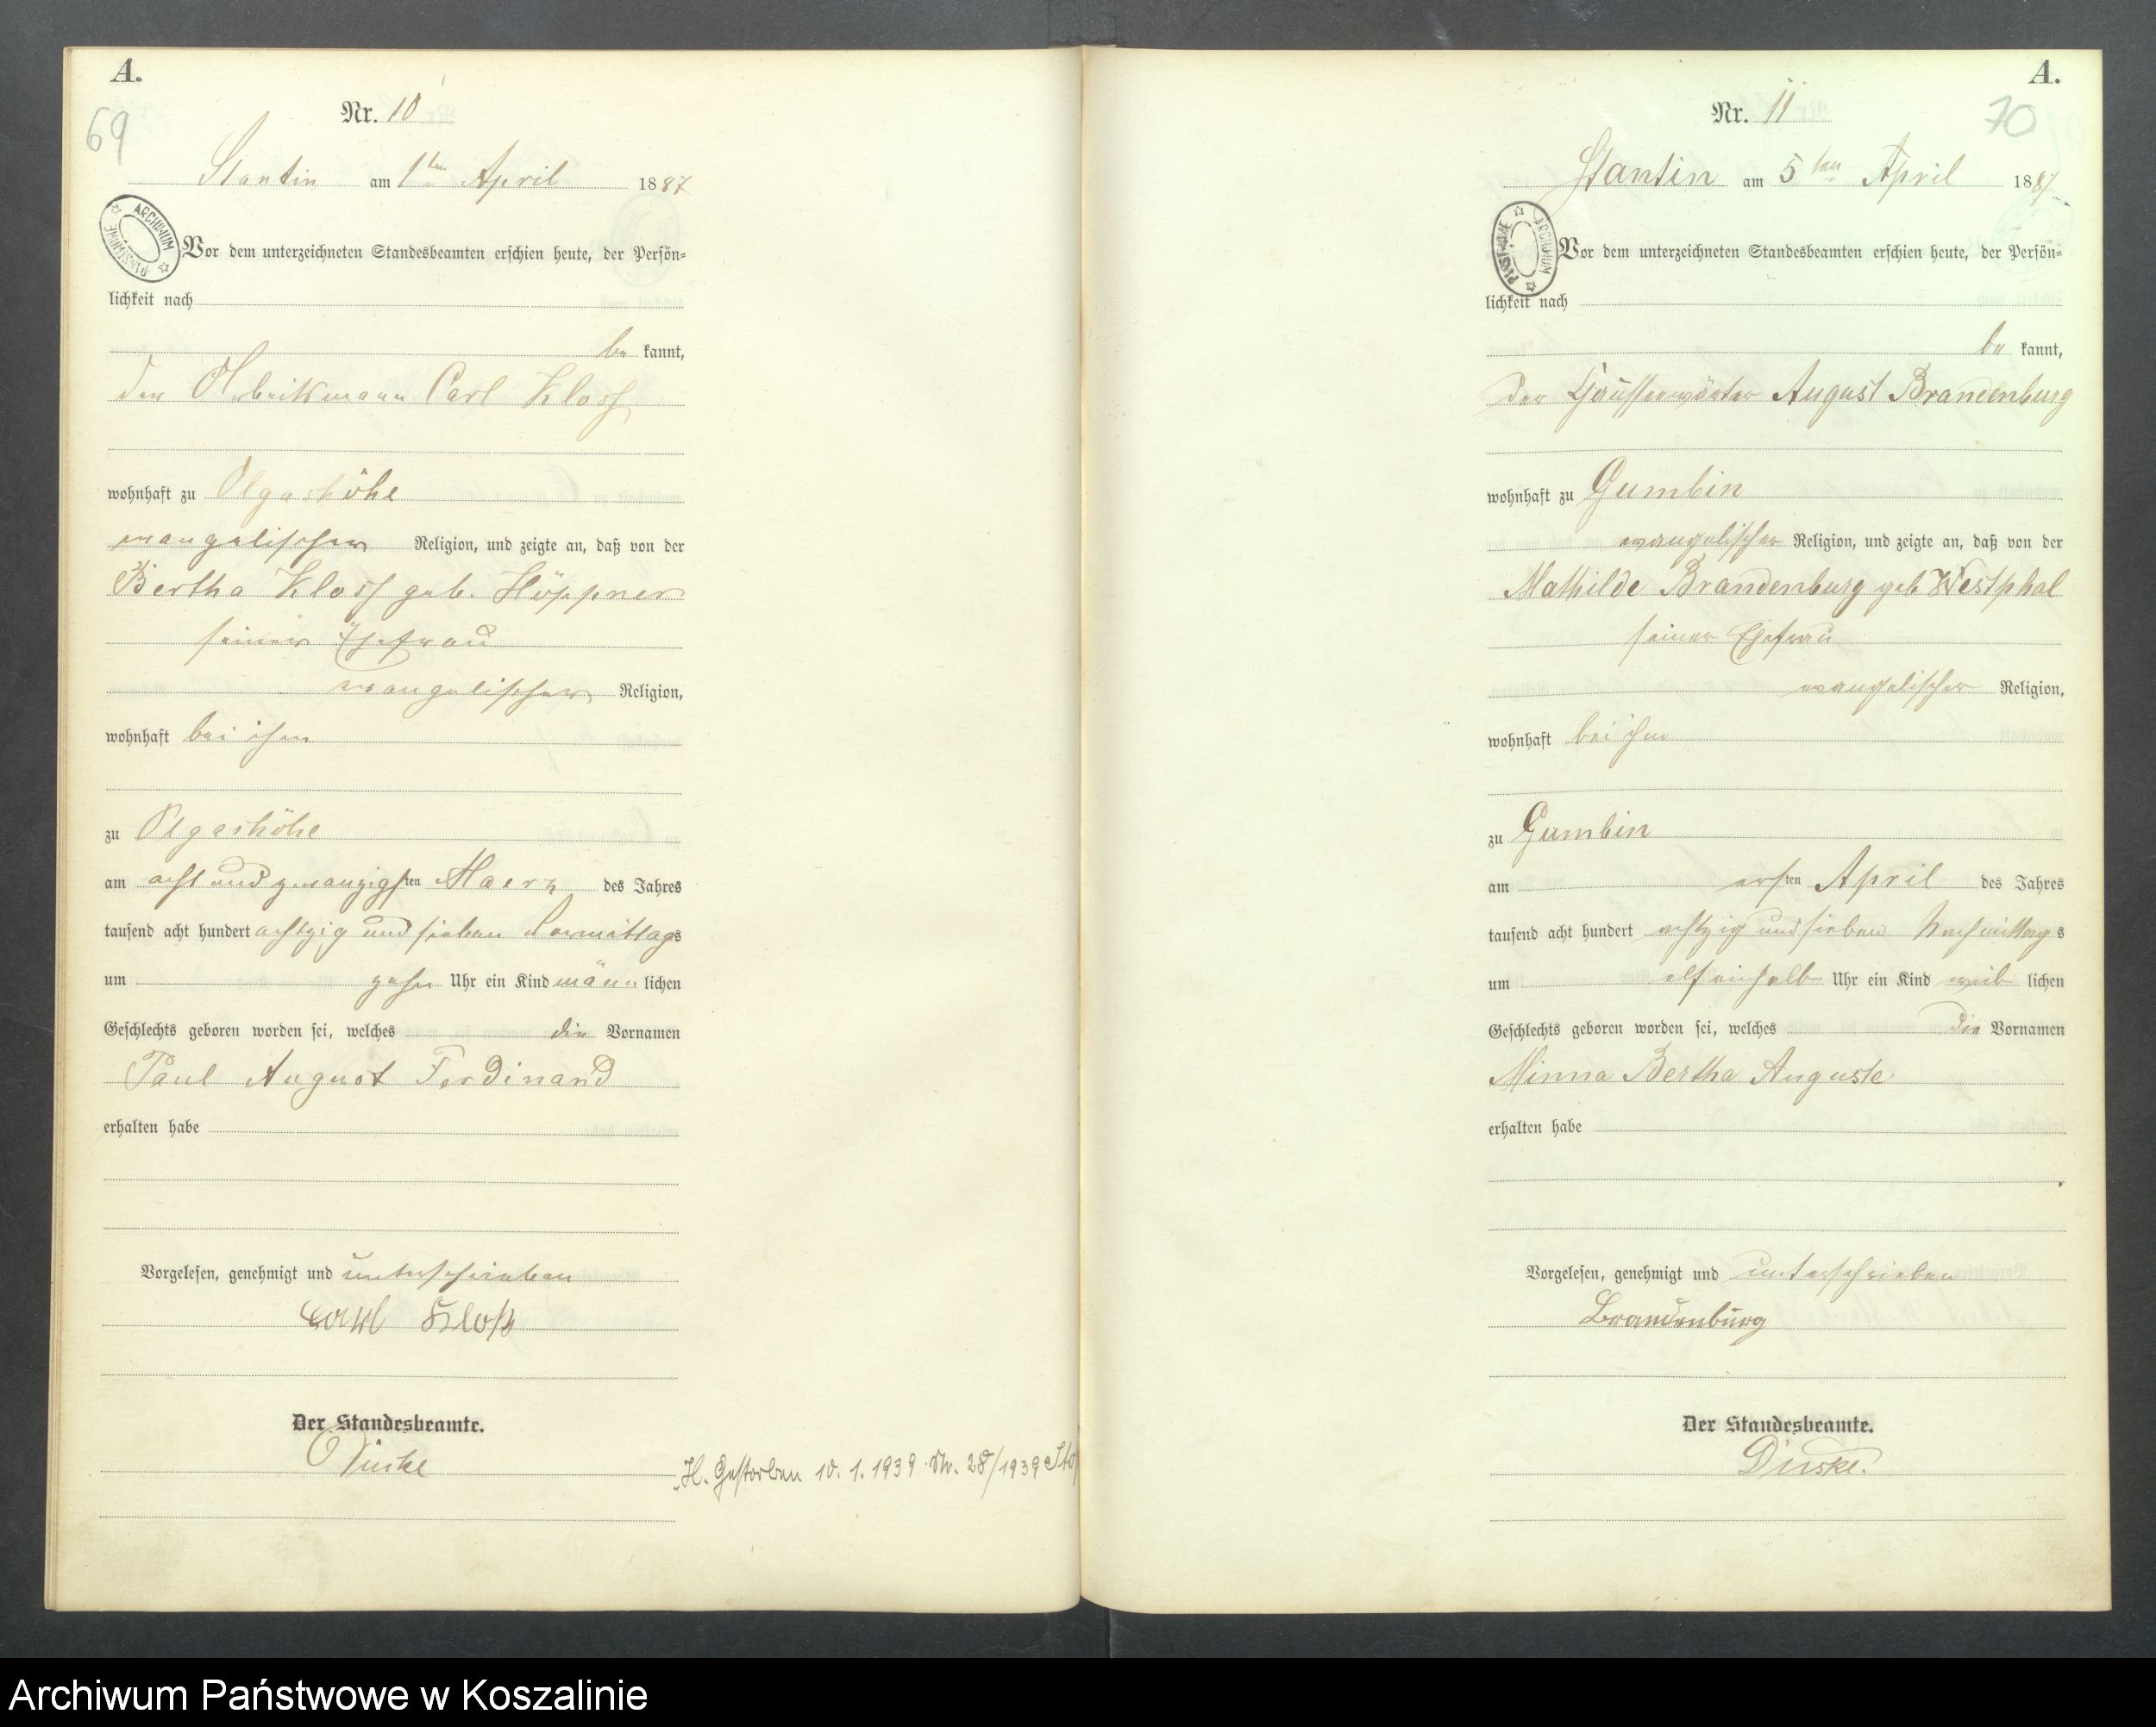 A.
Nr. 10
69
Stantin am 1ten April 1887
ARCHIWUM PAŃSTWOWE
Vor dem unterzeichneten Standesbeamten erschien heute, der Persön=
lichkeit nach
be kannt,
der Arbeitsmann Carl Kloss
wohnhaft zu Olgashöhe
evangelischer Religion, und zeigte an, daß von der
Bertha Kloss geb. Höppner
seiner Ehefrau
evangelischer Religion,
wohnhaft bei ihm
zu Olgashöhe
am acht und zwanzigsten Maerz des Jahres
tausend acht hundert achtzig und sieben Vormittags
um zehn Uhr ein Kind männlichen
Geschlechts geboren worden sei, welches die Vornamen
Paul August Ferdinand
erhalten habe
Vorgelesen, genehmigt und unterschrieben
Carl Kloß
Der Standesbeamte.
H. Gestorben 10. 1. 1939 Nr. 28/1939
A.
Nr. 11
70
Stantin am 5ten April 1887
ARCHIWUM PAŃSTWOWE
Vor dem unterzeichneten Standesbeamten erschien heute, der Persön=
lichkeit nach
be kannt,
der August Brandenburg
wohnhaft zu Gumbin
evangelischer Religion, und zeigte an, daß von der
Mathilde Brandenburg geb Westphal
seiner Ehefrau
evangelischer Religion,
wohnhaft bei ihm
zu Gumbin
am ersten April des Jahres
tausend acht hundert achtzig und sieben Nachmittags
um elf einhalb Uhr ein Kind weiblichen
Geschlechts geboren worden sei, welches die Vornamen
Minna Bertha Auguste
erhalten habe
Vorgelesen, genehmigt und unterschrieben
Brandenburg
Der Standesbeamte.
Archiwum Państwowe w Koszalinie